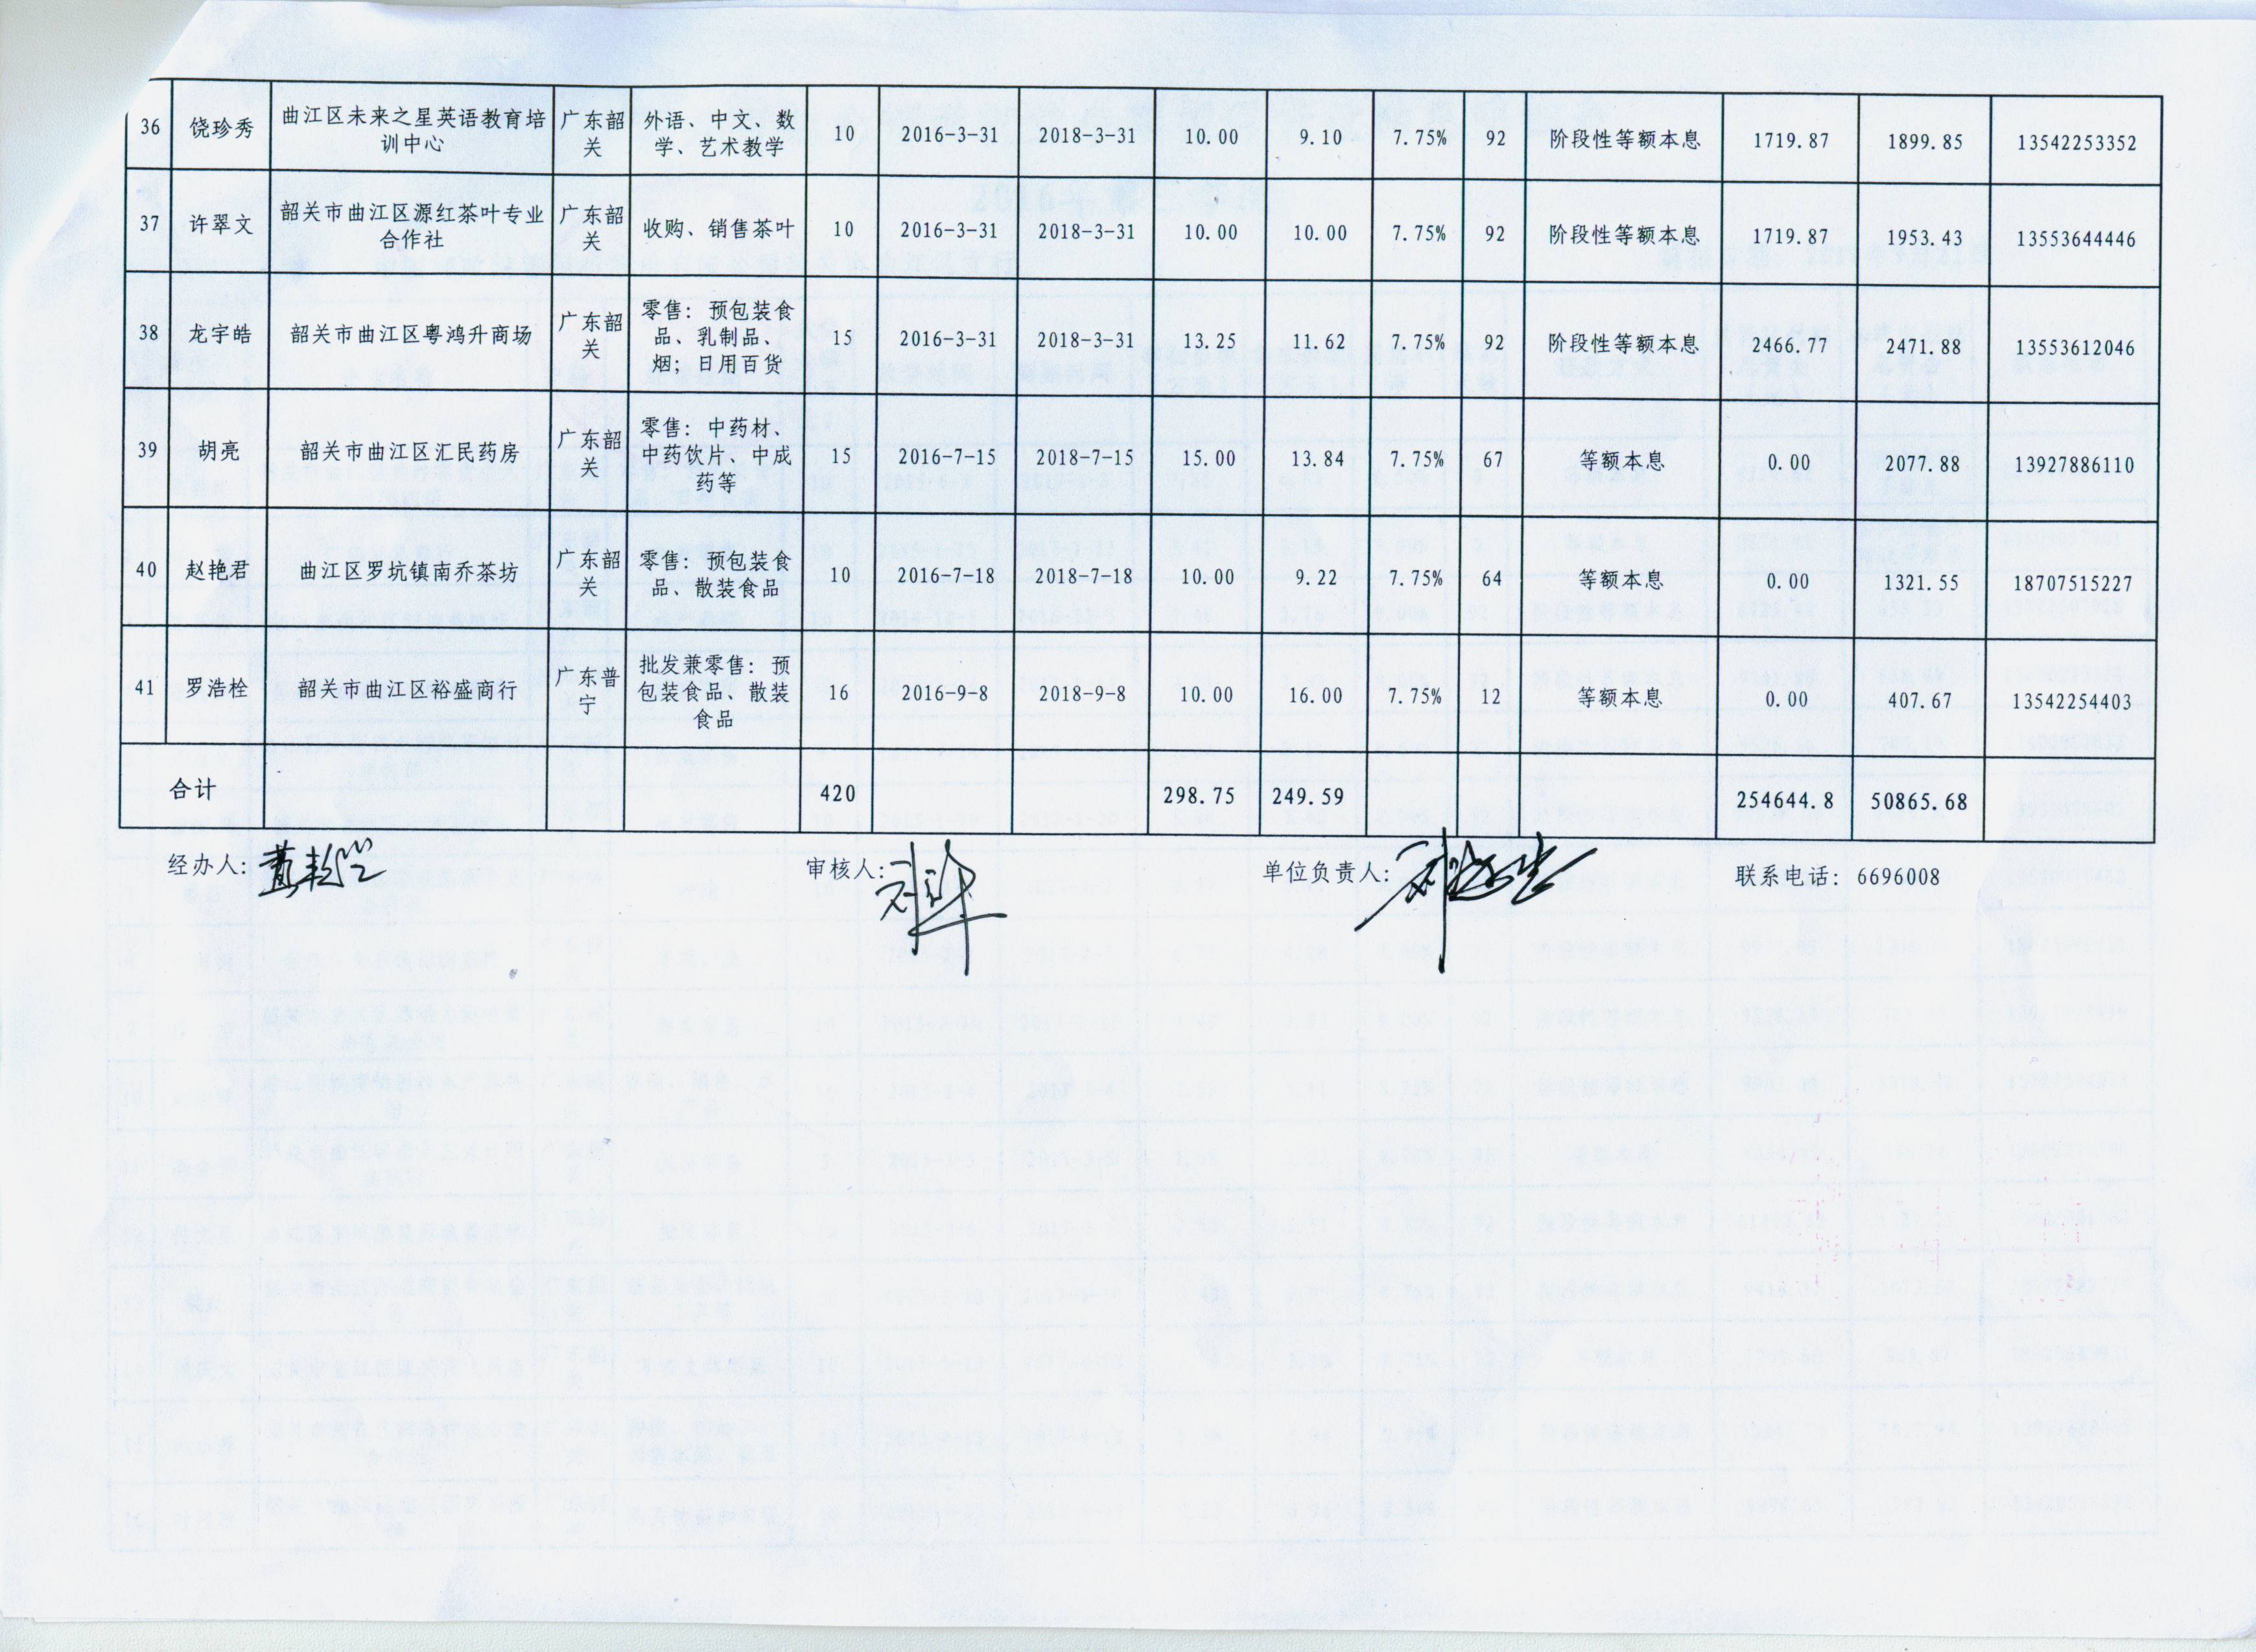 36 饶珍秀 曲江区未来之星英语教育培训中心 广东韶关 外语、中文、数学、艺术教学 10 2016-3-31 2018-3-31 10.00 9.10 7.75% 92 阶段性等额本息 1719.87 1899.85 13542253352
37 许翠文 韶关市曲江区源红茶叶专业合作社 广东韶关 收购、销售茶叶 10 2016-3-31 2018-3-31 10.00 10.00 7.75% 92 阶段性等额本息 1719.87 1953.43 13553644446
38 龙宇皓 韶关市曲江区粤鸿升商场 广东韶关 零售：预包装食品、乳制品、烟；日用百货 15 2016-3-31 2018-3-31 13.25 11.62 7.75% 92 阶段性等额本息 2466.77 2471.88 13553612046
39 胡亮 韶关市曲江区汇民药房 广东韶关 零售：中药材、中药饮片、中成药等 15 2016-7-15 2018-7-15 15.00 13.84 7.75% 67 等额本息 0.00 2077.88 13927886110
40 赵艳君 曲江区罗坑镇南乔茶坊 广东韶关 零售：预包装食品、散装食品 10 2016-7-18 2018-7-18 10.00 9.22 7.75% 64 等额本息 0.00 1321.55 18707515227
41 罗浩栓 韶关市曲江区裕盛商行 广东普宁 批发兼零售：预包装食品、散装食品 16 2016-9-8 2018-9-8 10.00 16.00 7.75% 12 等额本息 0.00 407.67 13542254403
合计 420 298.75 249.59 254644.8 50865.68
经办人： 审核人： 单位负责人： 联系电话：6696008